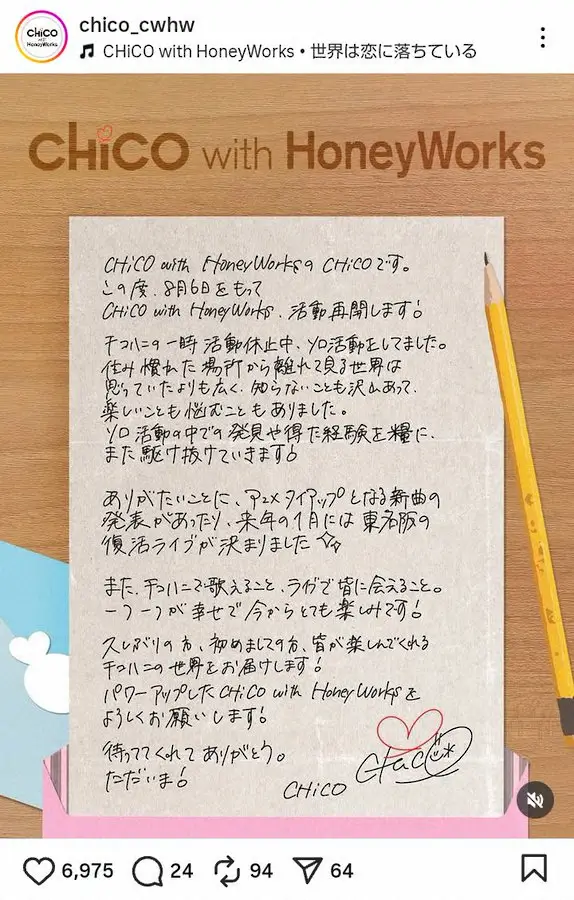 chico_cwhw
CHiCO with HoneyWorks • 世界は恋に落ちている
CHiCO with HoneyWorks
CHiCO with HoneyWorks
CHiCO with HoneyWorksのCHiCOです。
この度、8月6日をもって
CHiCO with HoneyWorks、活動再開します!
チコハニの一時活動休止中、ソロ活動をしてました。
住み慣れた場所から離れて見る世界は
思っていたよりも広く、知らないことも沢山あって、
楽しいことも悩むこともありました。
ソロ活動の中での発見や得た経験を糧に、
また駆け抜けていきます!
ありがたいことに、アニメタイアップとなる新曲の
発表があったり、来年の1月には東名阪の
復活ライブが決まりました☆☆
また、チコハニで歌えること、ライブで皆に会えること。
一つ一つが幸せで今からとても楽しみです!
久しぶりの方、初めましての方、皆が楽しんでくれる
チコハニの世界をお届けします!
パワーアップしたCHiCO with HoneyWorksを
よろしくお願いします!
待っててくれてありがとう。
ただいま!
CHiCO
CHiCO
6,975 24 94 64